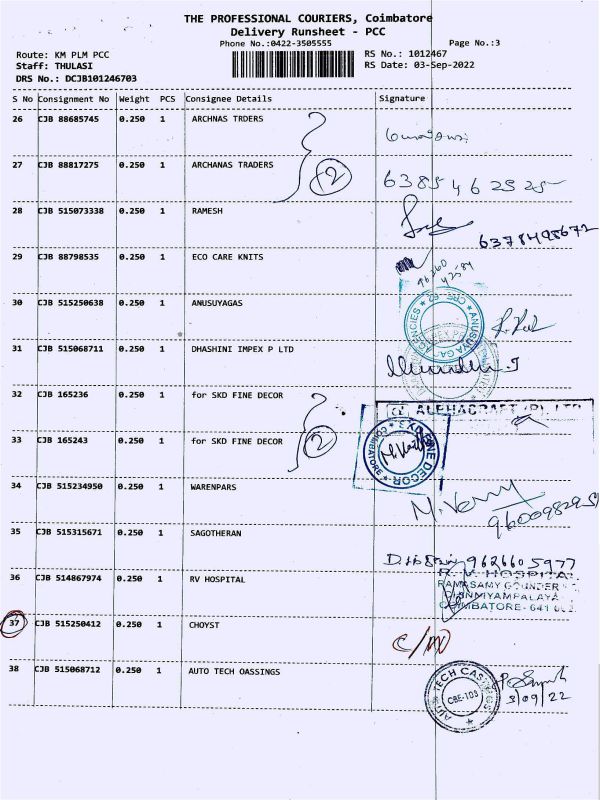 THE PROFESSIONAL COURIERS, Coimbatore
Delivery Runsheet - PCC
Phone No.:0422-3505555
Page No.:3
Route: KM PLM PCC
RS No.: 1012467
Staff: THULASI
RS Date: 03-Sep-2022
DRS No.: DCJB101246703
S No Consignment No Weight PCS Consignee Details Signature
26 CJB 88685745 0.250 1 ARCHNAS TRDERS
27 CJB 88817275 0.250 1 ARCHANAS TRADERS
2
6385462525
28 CJB 515073338 0.250 1 RAMESH
6378498672
29 CJB 88798535 0.250 1 ECO CARE KNITS
30 CJB 515250638 0.250 1 ANUSUYAGAS
ANUSUYA GAS AGENCIES
31 CJB 515068711 0.250 1 DHASHINI IMPEX P LTD
32 CJB 165236 0.250 1 for SKD FINE DECOR
ALPHACRAFT (P) LTD
33 CJB 165243 0.250 1 for SKD FINE DECOR
2
COIMBATORE
34 CJB 515234950 0.250 1 WARENPARS
35 CJB 515315671 0.250 1 SAGOTHERAN
9626605977
36 CJB 514867974 0.250 1 RV HOSPITAL
R. V. HOSPITAL
RAMASAMY GOUNDER
CHINNIYAMPALAYA
COIMBATORE - 641
37 CJB 515250412 0.250 1 CHOYST
38 CJB 515068712 0.250 1 AUTO TECH OASSINGS
AUTO TECH CASTINGS
CBE-103
3/09/22